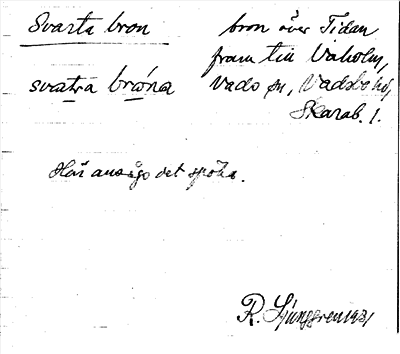 Svarta bron
svatra brona
bron över Tidan
fram till Vaholm,
Vads sn, Vadsbo hd,
Skarab. l.
Här ansågs det spöka.
R. Ljunggren 1931